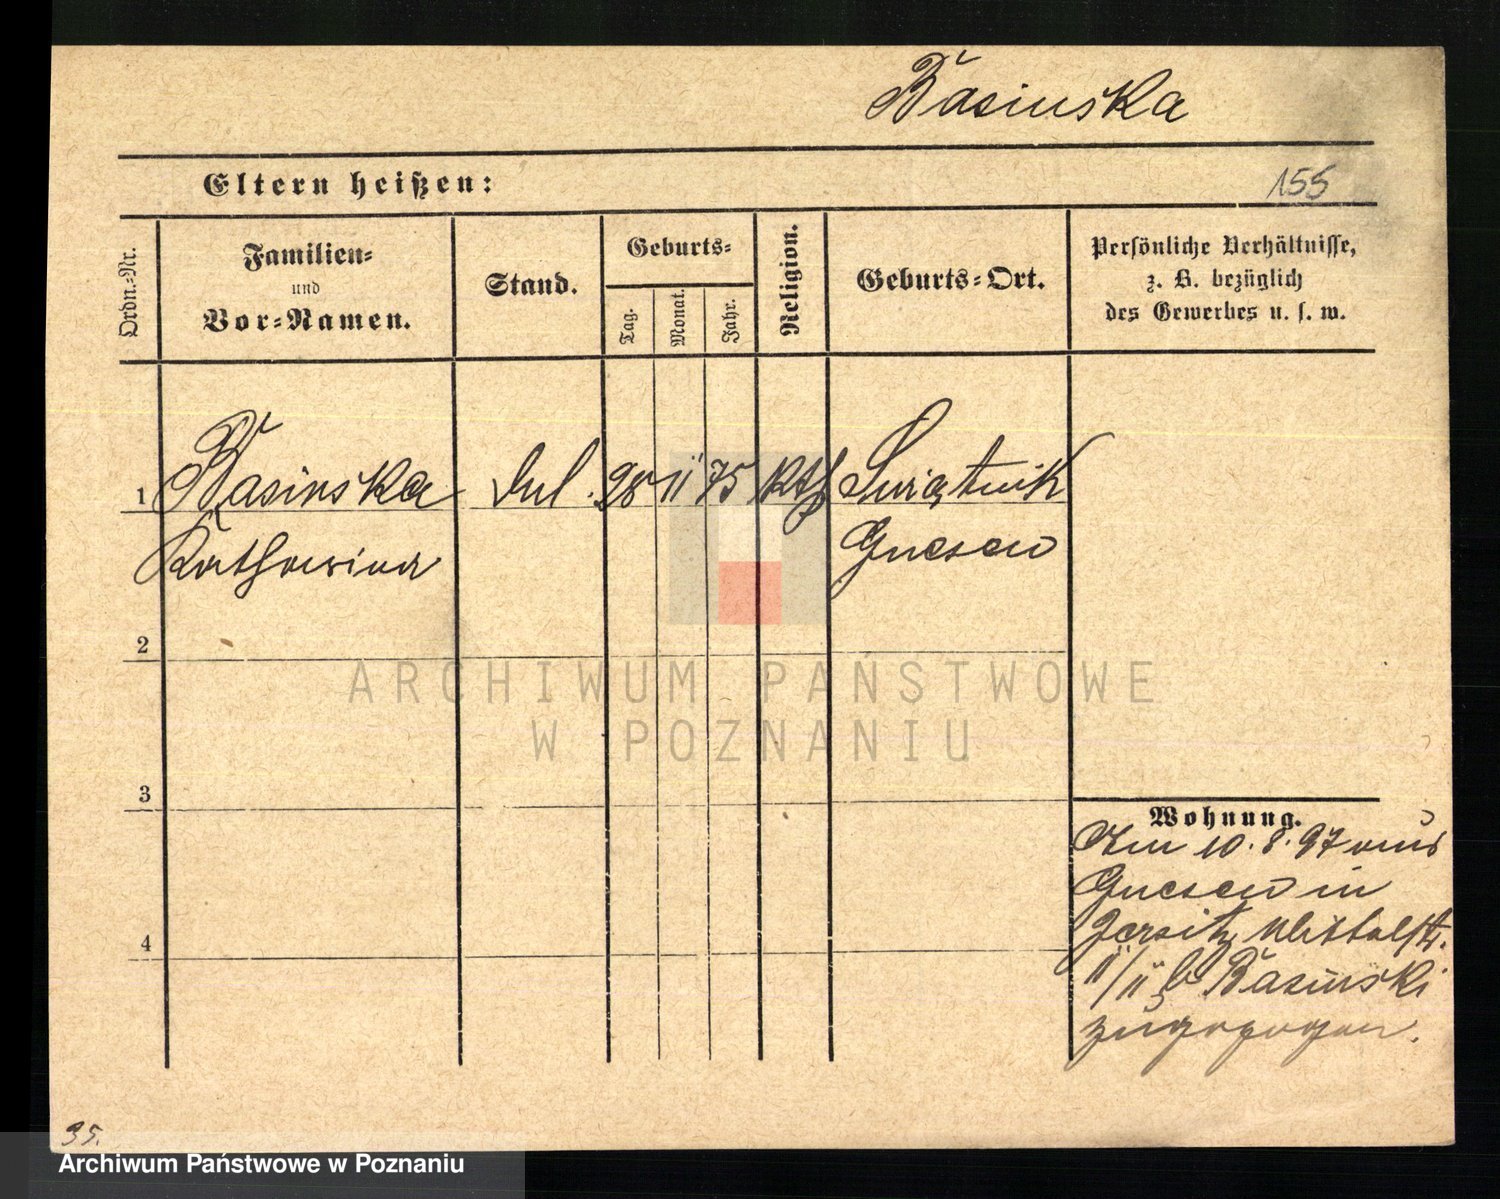 Basinska
Eltern heißen:
155
Ordn.-Nr.
Familien-
und
Vor-Namen.
Stand.
Geburts-
Tag.
Monat.
Jahr.
Religion.
Geburts-Ort.
Persönliche Verhältnisse,
z. B. bezüglich
des Gewerbes u. s. w.
1 Basinska 28 11 75 kth Swiątnik
Katharina Gnesen
2
3
4
Wohnung.
Am 10. 8. 97 aus
Gnesen in
Jersitz, Mittelstr.
11/11 b Basinski
zugezogen.
35.
ARCHIWUM PAŃSTWOWE
W POZNANIU
Archiwum Państwowe w Poznaniu